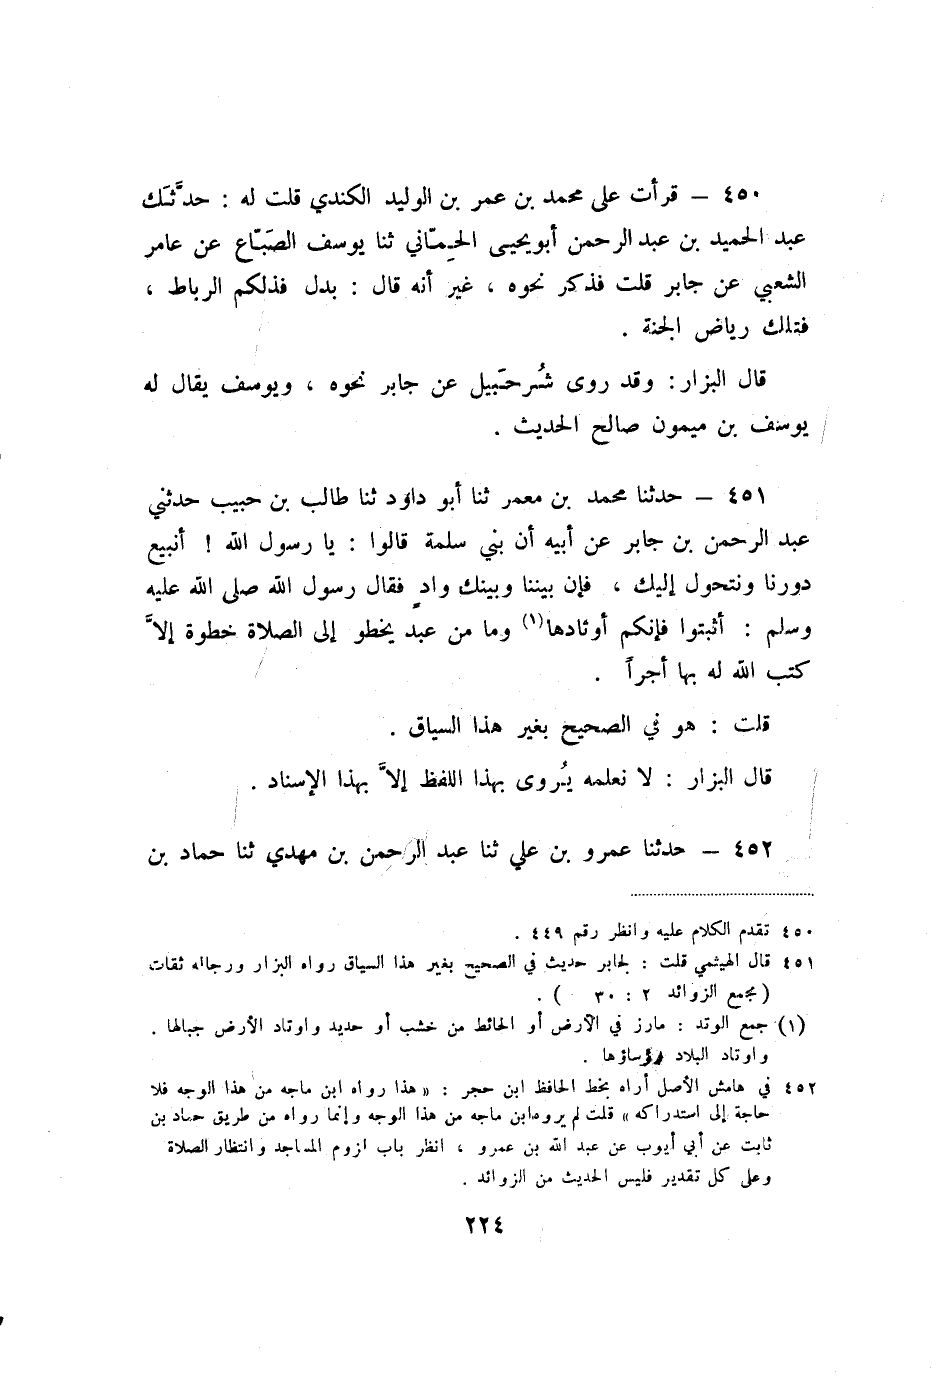 ٤٥٠ – قرأت على محمد بن عمر بن الوليد الكندي قلت له : حدَّثَك
عبد الحميد بن عبد الرحمن أبو يحيى الحِمّاني ثنا يوسف الصَبّاغ عن عامر
الشعبي عن جابر قلت فذكر نحوه ، غير أنه قال : بدل فذلكم الرباط ،
فتلك رياض الجنة .
قال البزار : وقد روى شُرحَبيل عن جابر نحوه ، ويوسف يقال له
يوسف بن ميمون صالح الحديث .
٤٥١ – حدثنا محمد بن معمر ثنا أبو داؤد ثنا طالب بن حبيب حدثني
عبد الرحمن بن جابر عن أبيه أن بني سلمة قالوا : يا رسول الله ! أنبيع
دورنا ونتحول إليك ، فإن بيننا وبينك وادٍ فقال رسول الله صلى الله عليه
وسلم : أثبتوا فإنكم أوتادها(١) وما من عبد يخطو إلى الصلاة خطوة إلاَّ
كتب الله له بها أجراً .
قلت : هو في الصحيح بغير هذا السياق .
قال البزار : لا نعلمه يُروى بهذا اللفظ إلاَّ بهذا الإسناد .
٤٥٢ – حدثنا عمرو بن علي ثنا عبد الرحمن بن مهدي ثنا حماد بن
٤٥٠ تقدم الكلام عليه وانظر رقم ٤٤٩ .
٤٥١ قال الهيثمي قلت : لجابر حديث في الصحيح بغير هذا السياق رواه البزار ورجاله ثقات
( مجمع الزوائد ٢ : ٣٠ ) .
(١) جمع الوتد : مارز في الأرض أو الحائط من خشب أو حديد واوتاد الأرض جبالها .
واوتاد البلاد رؤساؤها .
٤٥٢ في هامش الأصل أراه بخط الحافظ ابن حجر : « هذا رواه ابن ماجه من هذا الوجه فلا
حاجة إلى استدراكه » قلت لم يروه ابن ماجه من هذا الوجه وإنما رواه من طريق حماد بن
ثابت عن أبي أيوب عن عبد الله بن عمرو ، انظر باب لزوم المساجد وانتظار الصلاة
وعلى كل تقدير فليس الحديث من الزوائد .
٢٢٤